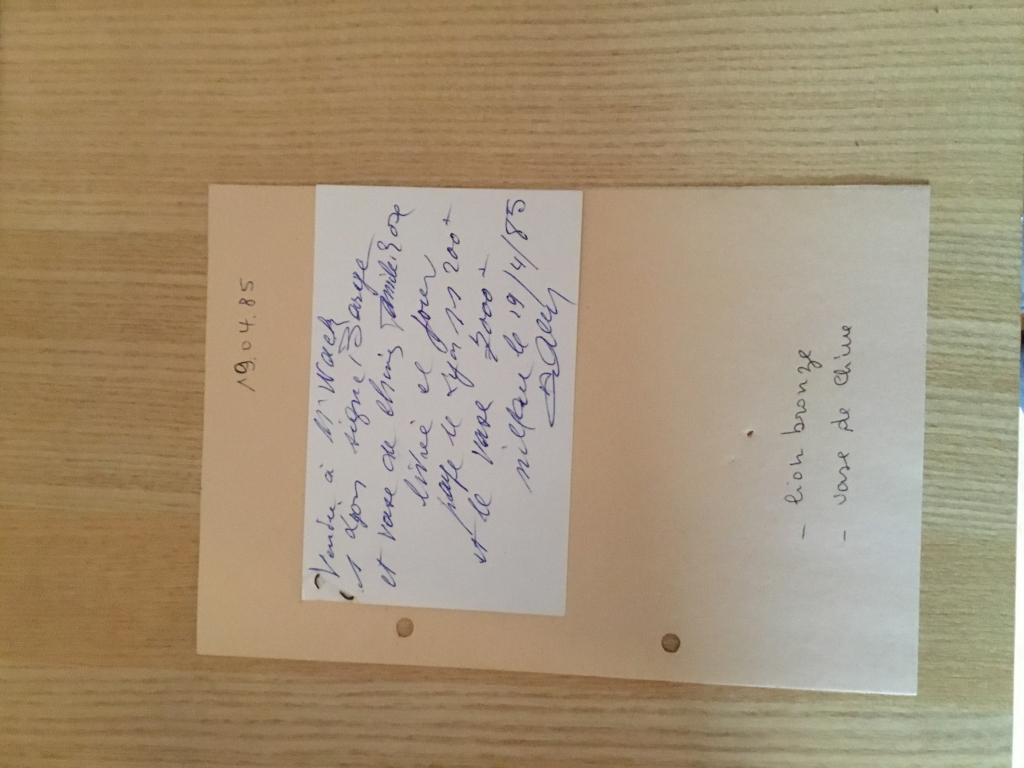 19.04.85
Vendu à Mr Wack
1 Lyon signé Barye
et vase de Chine famille rose
livrée ce jour
payé le Lyon 11 200 +
et le vase 2000 +
le 19/4/85
- lion bronze
- vase de Chine